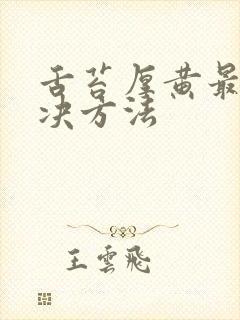 舌苔厚黄最
决方法
王雲飛